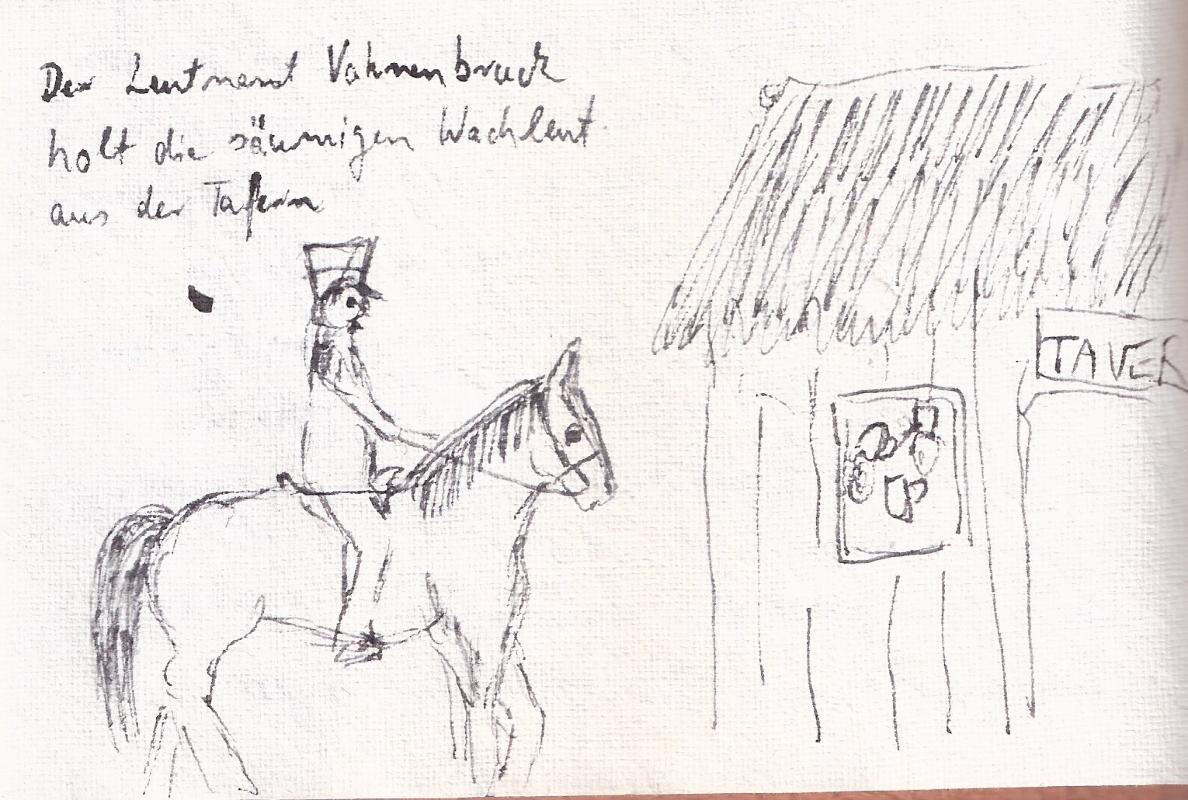 Der Leutnant Vahnenbruck
holt die säumigen Wachleut
aus der Tafern
TAVER